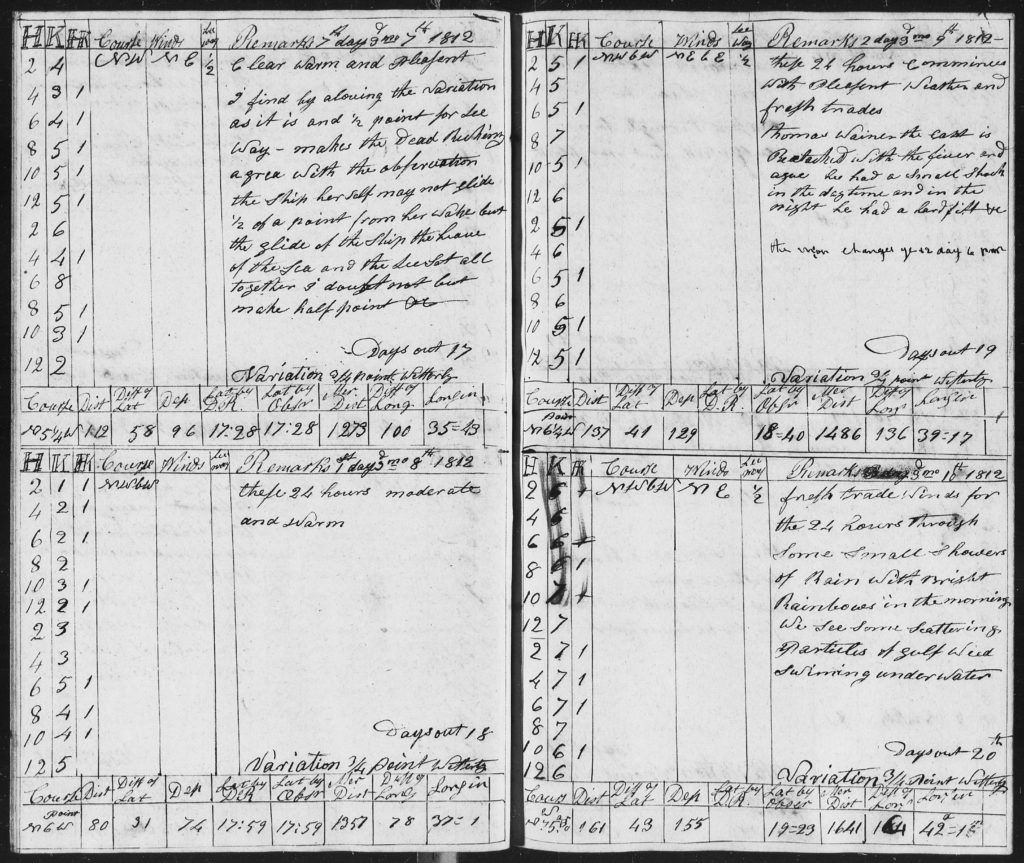 H K HK Course Winds Lee way Remarks 7th day 3d mo 7th 1812
2 4 NW NE ½ Clear warm and Pleasent
4 3 1 I find by alowing the variation
6 4 1 as it is and ½ point for Lee
8 5 1 Way - makes the Dead Rickning
10 5 1 agrea with the observation
12 5 1 the Ship herself may not glide
2 6 ½ of a point from her wake but
4 4 1 the glide of the Ship the heave
6 8 of the Sea and the Lee Sat all
8 5 1 together I doubt not but
10 3 1 make half point &c
12 2 Days out 17
Variation ¾ point Westerly
Course Dist Diff of Lat Dep Lat by D.R. Lat by Obsr Mer Dist Diff of Long. Long in
N 5¼ W 112 58 96 17=28 17=28 1273 100 35=43
H K HK Course Winds Lee way Remarks 1st day 3d mo 8th 1812
2 1 1 NWbW these 24 hours moderate
4 2 1 and warm
6 2 1
8 2
10 3 1
12 2 1
2 3
4 3
6 5 1
8 4 1
10 4 1 Days out 18
12 5 Variation ¾ point Westerly
Course Dist Diff of Lat Dep Lat by DR Lat by Obsr Mer Dist Diff of Long Long in
point N 6 W 80 31 74 17=59 17=59 1357 78 37=1
H K HK Course Winds Lee Way Remarks 2 day 3d mo 9th 1812
2 5 1 NWbW NEbE ½ these 24 hours Comminces
4 5 with Pleasent Weather and
6 5 1 fresh trades
8 7 Thomas Wainer the Cast is
10 5 1 Reatacked with the fiver and
12 6 ague he had a small Shock
2 5 1 in the daytime and in the
4 6 night he had a hard fitt &c
6 5 1 the moon changes ye 12 day 6
8 6
10 5 1
12 5 1 Days out 19
Variation ¾ point Westerly
Course Dist Diff of Lat Dep Lat by D.R. Lat by Obsr Mer Dist Diff of Long Long in
point N 6¼ W 137 41 129 18=40 1486 136 39=17
H K HK Course Winds Lee way Remarks 3d mo 10th 1812
2 NWbW NE ½ fresh trade Winds for
4 the 24 hours through
6 Some Small Showers
8 6 1 of Rain with Bright
10 Rainbowes in the morning
12 7 We See Some Scattering
2 7 1 Particles of gulf Weed
4 7 1 Swimming under water
6 7 1
8 7
10 6 1 Days out 20th
12 6 Variation ¾ Point Westerly
Course Dist Diff of Lat Dep Lat by D.R. Lat by Obser Mer Dist Diff of Long Long in
161 43 155 19=23 1641 164 42=1